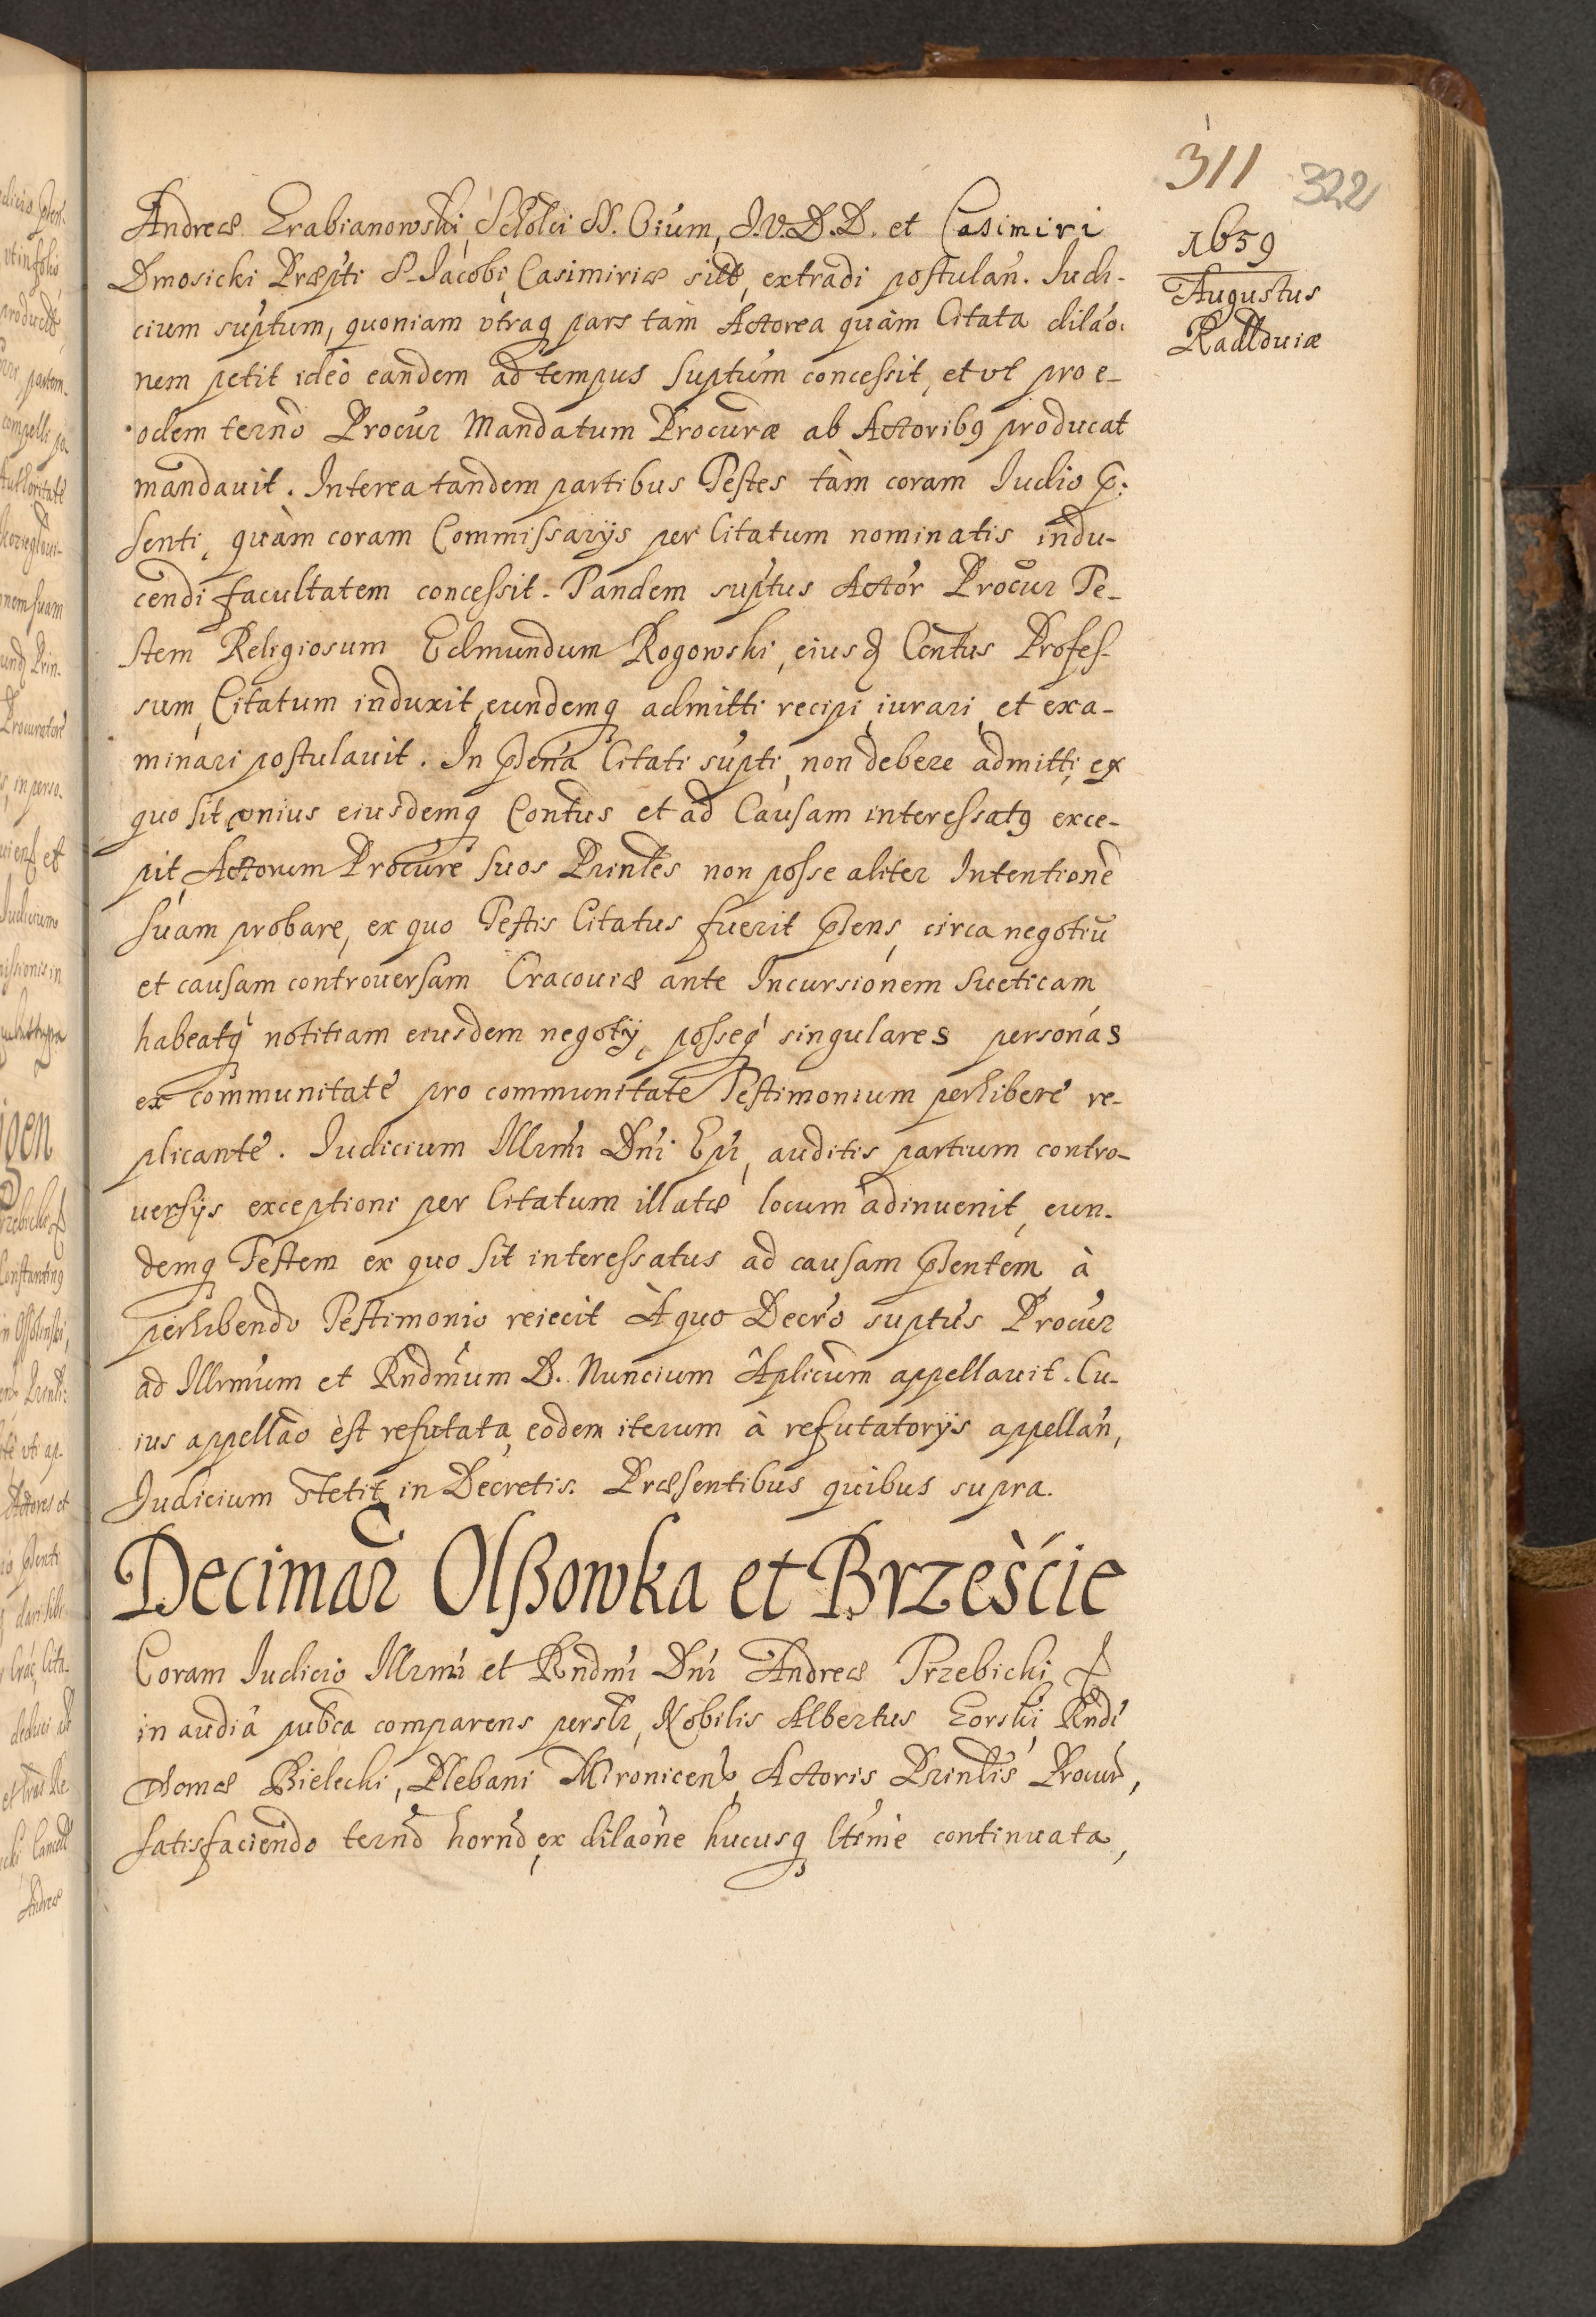 311 322
1659
Augustus
Radłoviæ
Andreæ Grabianowski, Scholci SS. Oium, J.V.D.D. et Casimiri
Dmosicki Præpti S. Jacobi Casimiriæ sitt, extradi postulan. Judi-
cium suptum, quoniam utraq pars tàm Actorea quàm Citata dilao-
nem petit ideò eandem ad tempus suptum concessit, et ut pro e-
odem termo Procur Mandatum Procuræ ab Actoribq producat
mandavit. Interea tandem partibus Testes tàm coram Judio p-
senti, quàm coram Commissarijs per Citatum nominatis indu-
cendi facultatem concessit. Tandem suptus Actor Procur Te-
stem Religiosum Edmundum Rogowski, eiusd Contus Profes-
sum, Citatum induxit, eundemq admitti recipi, iurari, et exa-
minari postulavit. In psena Citati supti, non debere admitti, ex
quo sit unius eiusdemq Contus et ad Causam interessatq exce-
pit, Actorum Procure suos Prinles non posse aliter Intentione
suam probare, ex quo Testis Citatus fuerit psens, circa negotiu
et causam controversam Cracoviæ ante Incursionem Sueticam
habeatq notitiam eiusdem negotij, posseq singulares personas
ex communitate pro communitate Testimonium perhibere re-
plicante. Judicium Illrmi Dni Epi, auditis partium contro-
versijs exceptioni per Citatum illatæ locum adinvenit, eun-
demq Testem ex quo sit interessatus ad causam psentem, à
perhibendo Testimonio reiecit. A quo Decro suptus Procur
ad Illrmum et Rndmum D. Nuncium Aplicum appellavit. Cu-
ius appellao est refutata, eodem iterum à refutatorijs appellan,
Judicium stetit in Decretis. Præsentibus quibus supra.
Decimar Olßowka et Brzeście
Coram Judicio Illrmi et Rndmi Dni Andreæ Trzebicki
in audia pubca comparens perslr, Nobilis Albertus Gorski, Rndi
Thomæ Bielecki, Plebani Mironicens, Actoris Prinlis Procur,
satisfaciendo termo horno, ex dilaone hucusq ltime continuata,